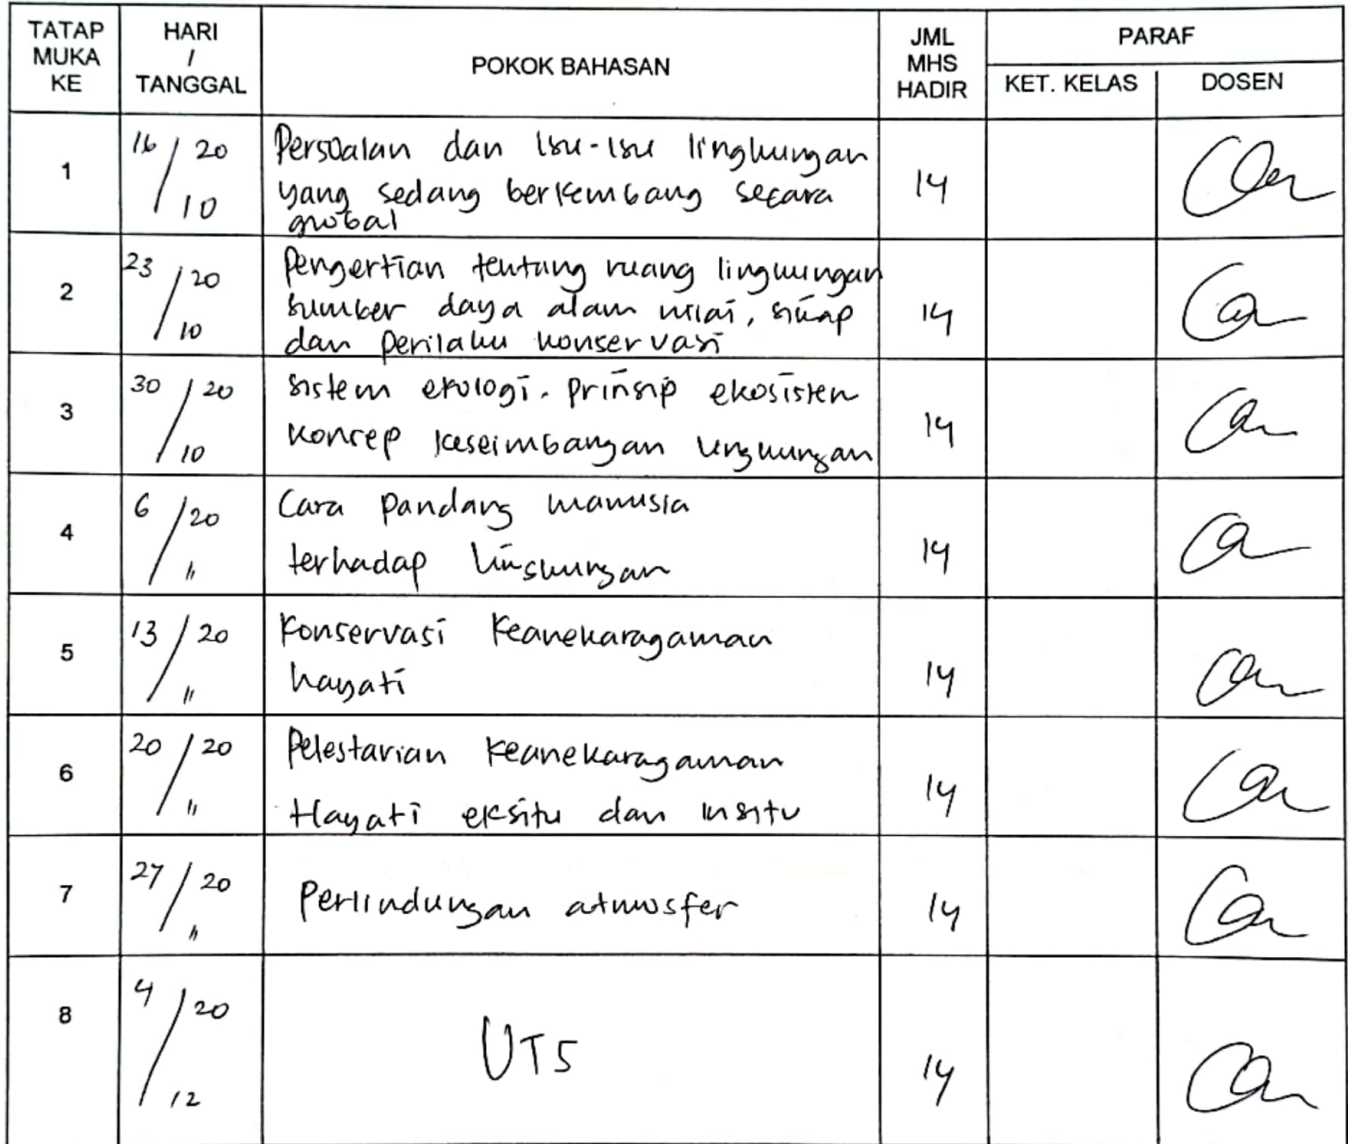 TATAP MUKA KE
HARI / TANGGAL
POKOK BAHASAN
JML MHS HADIR
PARAF
KET. KELAS
DOSEN
1
16/10 20
Persoalan dan isu-isu lingkungan
yang sedang berkembang secara
global
14
2
23/10 20
Pengertian tentang ruang lingkungan
sumber daya alam nilai, sikap
dan perilaku konservasi
14
3
30/10 20
sistem ekologi. Prinsip ekosistem
Konsep keseimbangan lingkungan
14
4
6/11 20
Cara Pandang manusia
terhadap lingkungan
14
5
13/11 20
Konservasi Keanekaragaman
hayati
14
6
20/11 20
Pelestarian Keanekaragaman
Hayati eksitu dan insitu
14
7
27/11 20
Perlindungan atmosfer
14
8
4/12 20
UTS
14